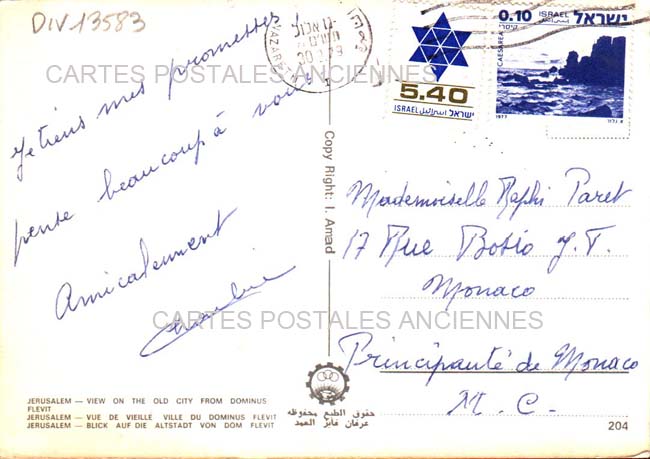 DIV 13583
NAZARE
ISRAEL
ישראל
5.40
ISRAEL اسرائيل ישראל
0.10
CAESAREA
1977
CARTES POSTALES ANCIENNES
Je tiens mes promesses
pense beaucoup à vous
Amicalement
Copy Right: I. Amad
Mademoiselle Raphi Paret
17 Rue Bosio J.T.
Monaco
CARTES POSTALES ANCIENNES
Principauté de Monaco
M. C.
JERUSALEM — VIEW ON THE OLD CITY FROM DOMINUS
FLEVIT
JERUSALEM — VUE DE VIEILLE VILLE DU DOMINUS FLEVIT
JERUSALEM — BLICK AUF DIE ALTSTADT VON DOM FLEVIT
حقوق الطبع محفوظه
عرفان فايز العمد
204